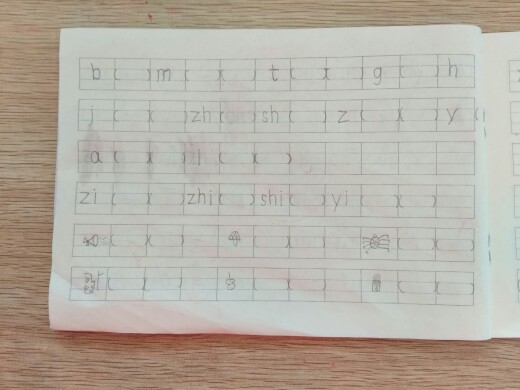 b ( ) m ( ) ( ) t ( ) ( ) g ( ) h
j ( ) ( ) zh ( ) sh ( ) z ( ) ( ) y (
a ( ) ( ) i ( ) ( )
zi ( ) ( ) zhi ( ) shi ( ) yi ( ) ( )
( ) ( ) ( ) ( ) ( ) ( )
( ) ( ) ( ) ( ) ( ) ( )